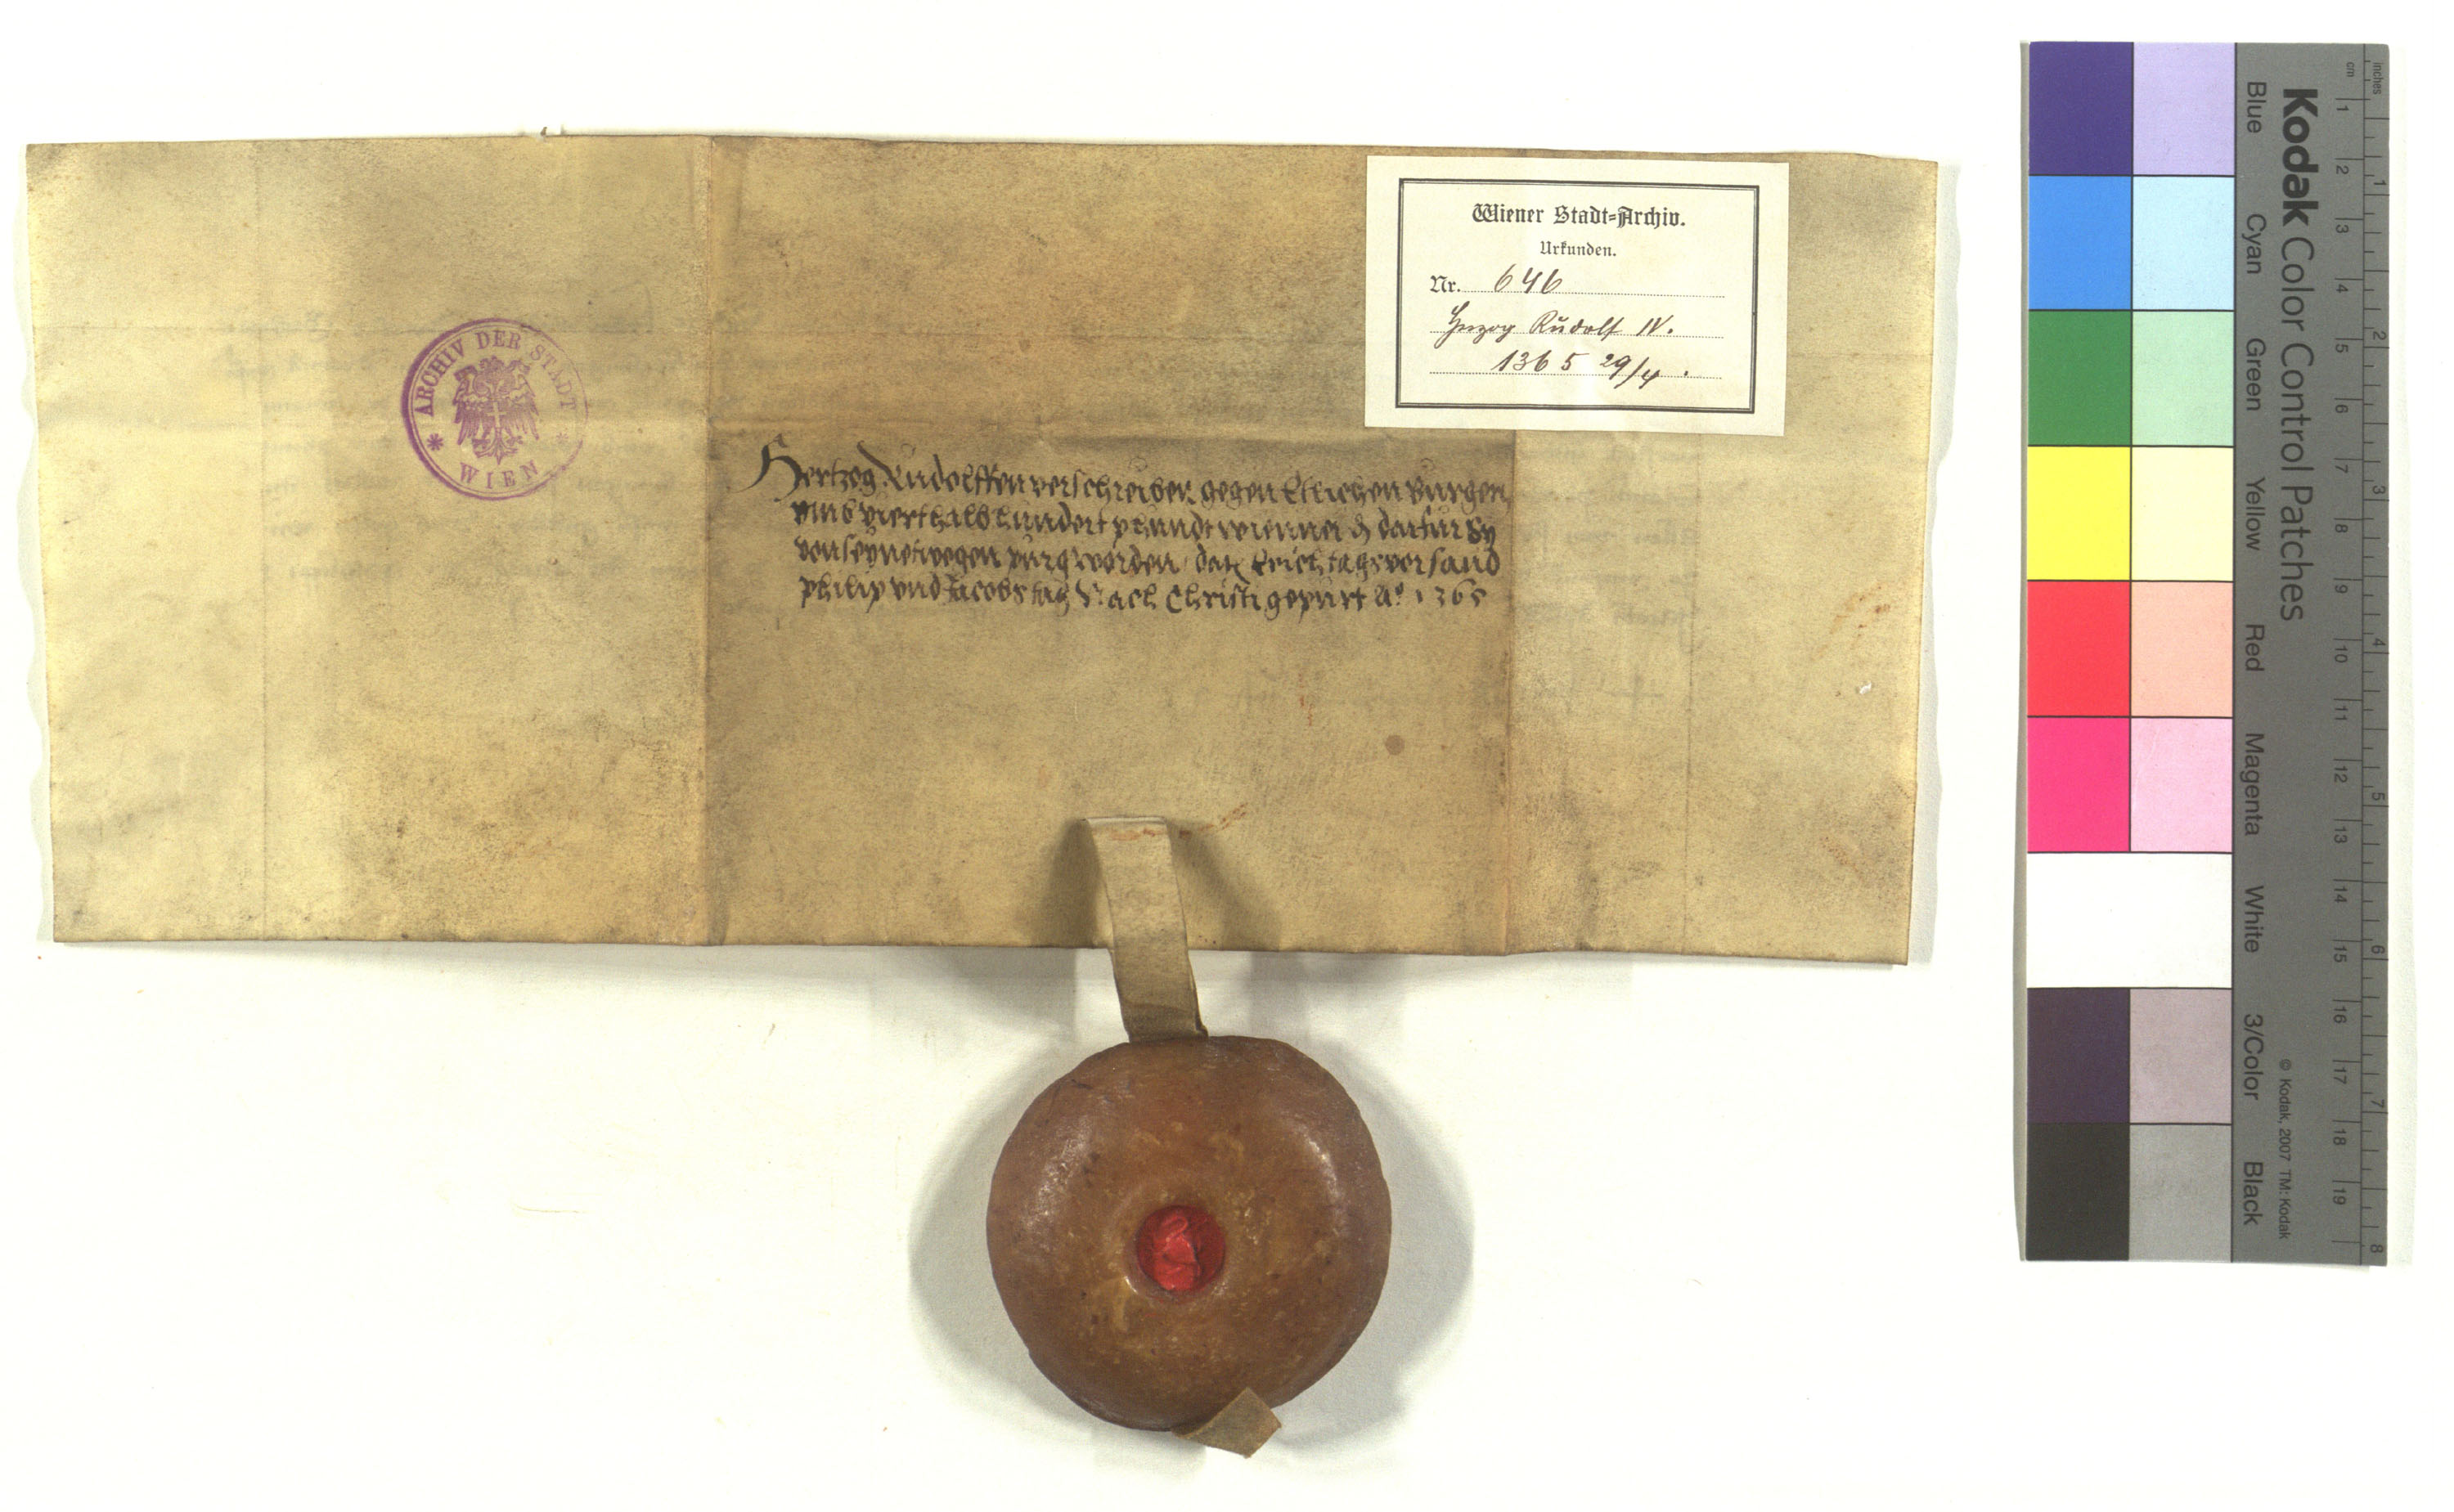 ARCHIV DER STADT
* WIEN *
Wiener Stadt-Archiv.
Urkunden.
Nr. 646
Herzog Rudolf IV.
1365 29/4.
Hertzog Rudolffen verschreiben gegen Etlichen Burgern
umb vierthalbhundert phundt wienner ₰ darfur Sy
von seynetwegen purg worden, dat Erichtags vor sand
philip und Jacobs tag Nach Christi gepurt Aº 1365
Kodak Color Control Patches
Blue Cyan Green Yellow Red Magenta White 3/Color Black
© Kodak, 2007 TM: Kodak
cm 1 2 3 4 5 6 7 8 9 10 11 12 13 14 15 16 17 18 19
inches 1 2 3 4 5 6 7 8